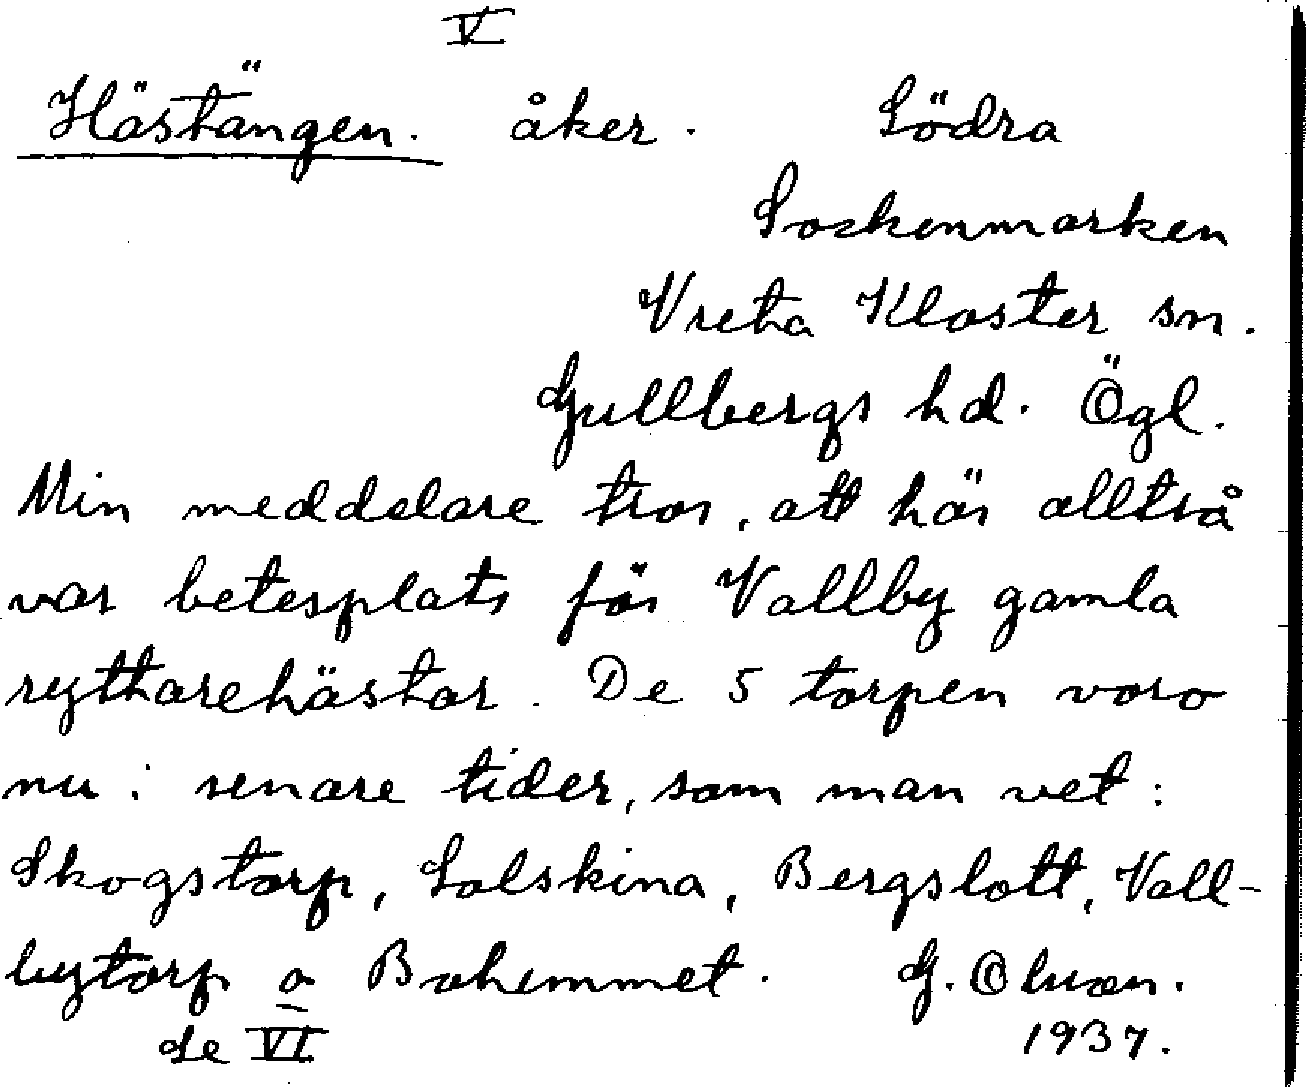 V
Hästängen. åker. Södra
Sockenmarken
Vreta Kloster sn.
Gullbergs hd. Ögl.
Min meddelare tror, att här alltså
var betesplats för Vallby gamla
ryttarehästar. De 5 torpen voro
nu i senare tider, som man vet:
Skogstorp, Solskina, Bergslott, Vall-
bytorp o Bohemmet. G.
se VI 1937.